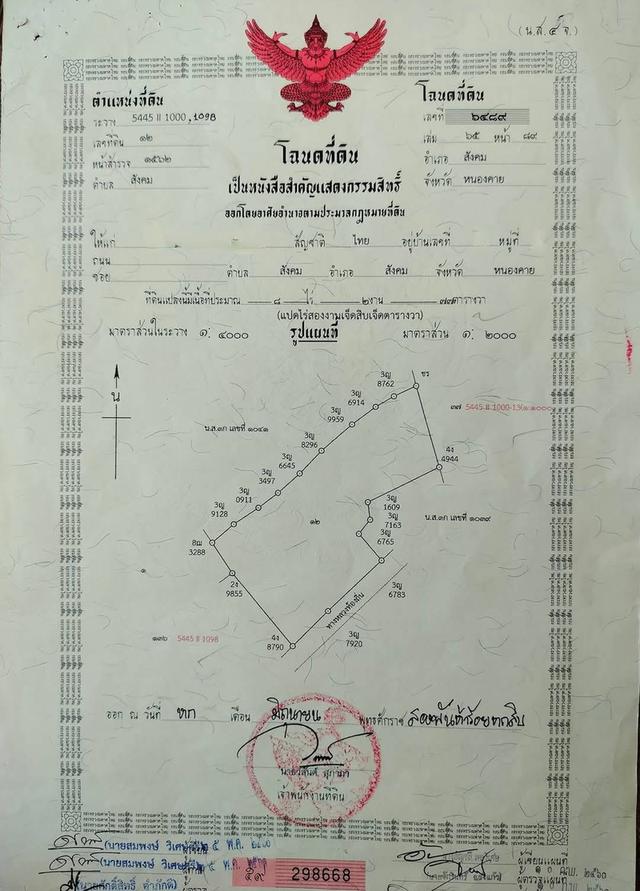 (น.ส. ๔ จ.)
ตำแหน่งที่ดิน
ระวาง 5445 II 1000, 1098
เลขที่ดิน ๑๒
หน้าสำรวจ ๑๕๖๒
ตำบล สังคม
โฉนดที่ดิน
เลขที่ ๖๔๘๙
เล่ม ๖๕ หน้า ๘๙
อำเภอ สังคม
จังหวัด หนองคาย
โฉนดที่ดิน
เป็นหนังสือสำคัญแสดงกรรมสิทธิ์
ออกโดยอาศัยอำนาจตามประมวลกฎหมายที่ดิน
ให้แก่ สัญชาติ ไทย อยู่บ้านเลขที่ หมู่ที่
ถนน
ซอย ตำบล สังคม อำเภอ สังคม จังหวัด หนองคาย
ที่ดินแปลงนี้มีเนื้อที่ประมาณ ๘ ไร่ ๒ งาน ๗๗ ตารางวา
(แปดไร่สองงานเจ็ดสิบเจ็ดตารางวา)
มาตราส่วนในระวาง ๑: ๔๐๐๐ รูปแผนที่ มาตราส่วน ๑: ๒๐๐๐
น
3ญ
8762
ชร
3ญ
6914
3ญ
9959
๓๗ 5445 II 1000-13
น.ส.๓ก เลขที่ ๑๐๔๑
3ญ
8296
4ง
4944
3ญ
6645
3ญ
3497
3ญ
0911
3ญ
9128
3ญ
1609
๑๒
3ญ
7163
น.ส.๓ก เลขที่ ๑๐๓๙
3ญ
6765
8ฌ
3288
๑
2ง
9855
3ญ
6783
ทางหลวงท้องถิ่น
๑๓๖ 5445 II 1098
4ง
8790
3ญ
7920
ออก ณ วันที่ หก เดือน มิถุนายน พุทธศักราช สองพันห้าร้อยหกสิบ
เจ้าพนักงานที่ดิน
(นายสมพงษ์
(นายสมพงษ์
298668
ผู้เขียนแผนที่
ผู้ตรวจแผนที่